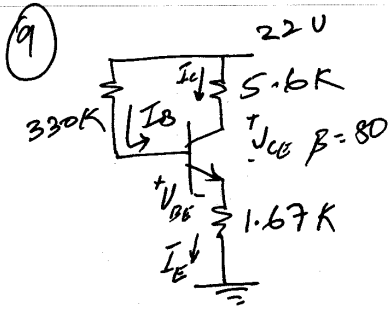 9
22V
Ic
5.6K
330K
IB
+
VCE
-
β=80
+
VBE
-
1.67K
IE